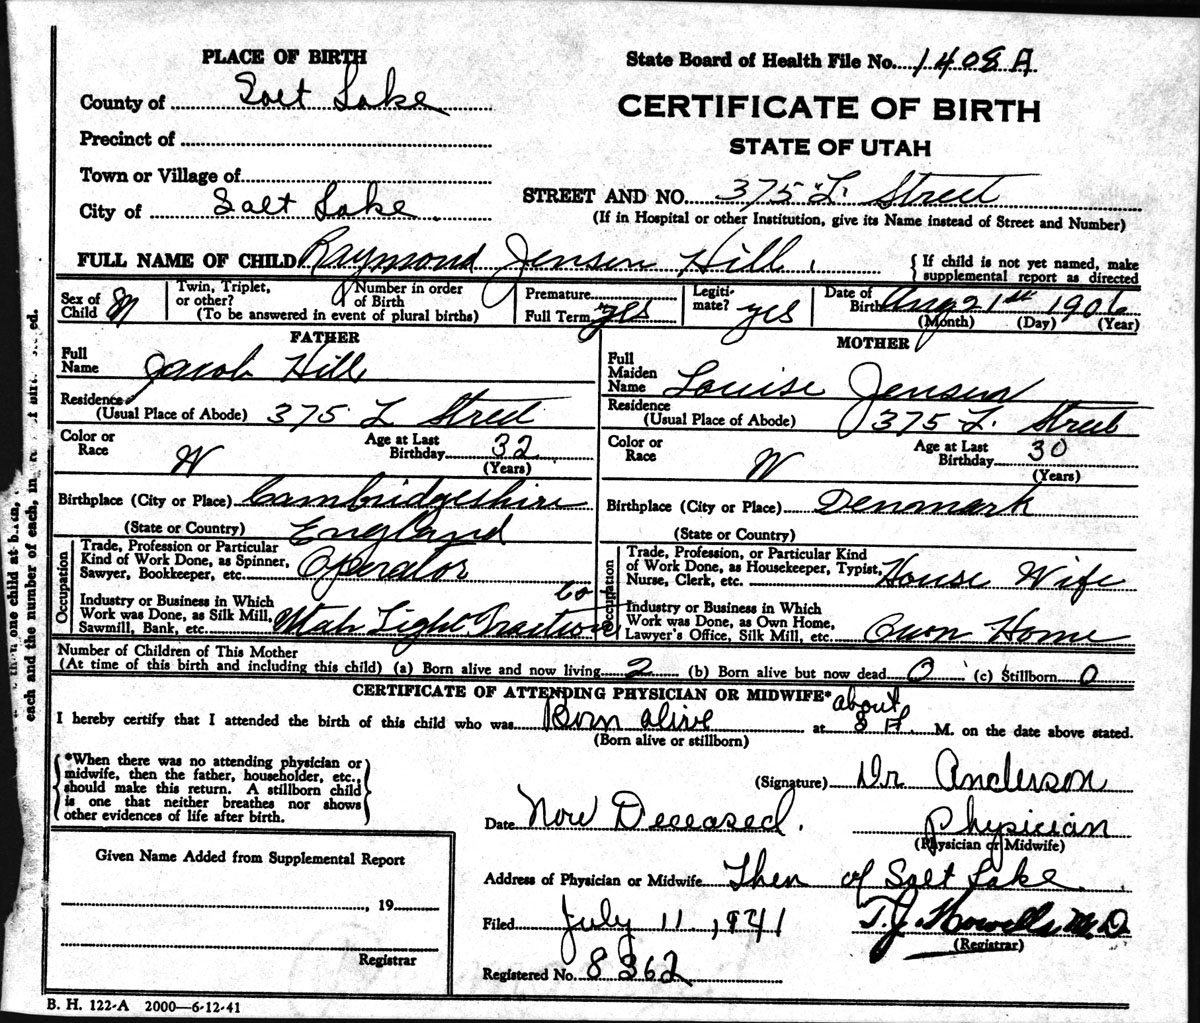 PLACE OF BIRTH
State Board of Health File No. 1408A
County of Salt Lake
CERTIFICATE OF BIRTH
Precinct of
STATE OF UTAH
Town or Village of
STREET AND NO. 375 "L" Street
City of Salt Lake.
(If in Hospital or other Institution, give its Name instead of Street and Number)
FULL NAME OF CHILD Raymond Jensen Hill.
{ If child is not yet named, make
supplemental report as directed
Sex of
Child M
Twin, Triplet,
or other?
Number in order
of Birth
(To be answered in event of plural births)
Premature
Full Term yes
Legiti-
mate? yes
Date of
Birth Aug 21st 1906
(Month) (Day) (Year)
FATHER
Full
Name Jacob Hill
Residence
(Usual Place of Abode) 375 L Street
Color or
Race W
Age at Last
Birthday 32
(Years)
Birthplace (City or Place) Cambridgeshire
(State or Country) England
Occupation
Trade, Profession or Particular
Kind of Work Done, as Spinner,
Sawyer, Bookkeeper, etc. Operator
Industry or Business in Which
Work was Done, as Silk Mill,
Sawmill, Bank, etc. Utah Light Traction Co
MOTHER
Full
Maiden
Name Louise Jensen
Residence
(Usual Place of Abode) 375 L. Street
Color or
Race W
Age at Last
Birthday 30
(Years)
Birthplace (City or Place) Denmark
(State or Country)
Occupation
Trade, Profession, or Particular Kind
of Work Done, as Housekeeper, Typist,
Nurse, Clerk, etc. House Wife
Industry or Business in Which
Work was Done, as Own Home,
Lawyer's Office, Silk Mill, etc. Own Home
Number of Children of This Mother
(At time of this birth and including this child) (a) Born alive and now living 2 (b) Born alive but now dead 0 (c) Stillborn 0
CERTIFICATE OF ATTENDING PHYSICIAN OR MIDWIFE*
I hereby certify that I attended the birth of this child who was Born alive at about 8 A. M. on the date above stated.
(Born alive or stillborn)
*When there was no attending physician or
midwife, then the father, householder, etc.,
should make this return. A stillborn child
is one that neither breathes nor shows
other evidences of life after birth.
(Signature) Dr Anderson
Date Now Deceased. Physician
(Physician or Midwife)
Address of Physician or Midwife Then of Salt Lake.
Filed July 11, 1941 T. J. Howells M.D.
(Registrar)
Registered No. 8362
Given Name Added from Supplemental Report
, 19
Registrar
B. H. 122-A 2000—6-12-41
one child at
each and the number of each, in